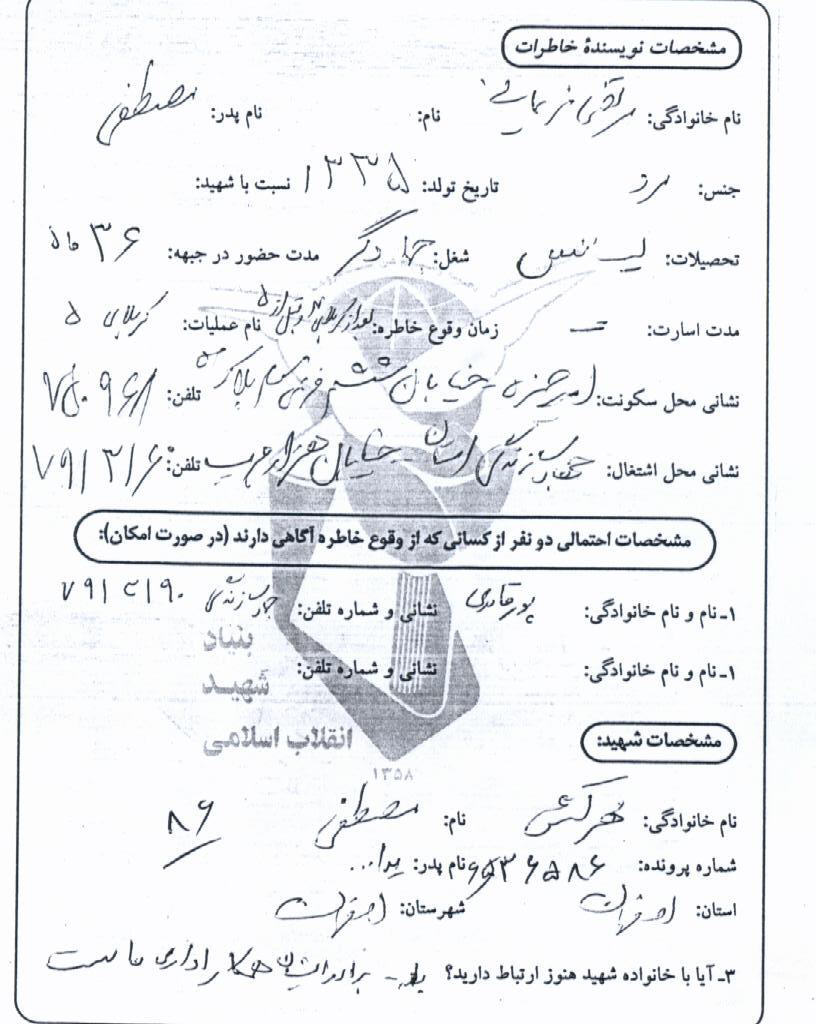 مشخصات نویسندهٔ خاطرات
نام خانوادگی: مرتضی نام: نام پدر: مصطفی
جنس: مرد تاریخ تولد: ۱۳۳۵ نسبت با شهید:
تحصیلات: لیسانس شغل: جهادگر مدت حضور در جبهه: ۳۶ ماه
مدت اسارت: – زمان وقوع خاطره: بعد از کربلای ۴ و قبل از ۵ نام عملیات: کربلای ۵
نشانی محل سکونت: خیابان ششم فرعی پلاک تلفن: ۷۵۰۹۶۸
نشانی محل اشتغال: جهاد سازندگی استان - خیابان هزار جریب تلفن: ۷۹۱۳۱۶۰
مشخصات احتمالی دو نفر از کسانی که از وقوع خاطره آگاهی دارند (در صورت امکان):
۱ـ نام و نام خانوادگی: پورقادری نشانی و شماره تلفن: جهاد سازندگی ۷۹۱۲۱۹۰
۱ـ نام و نام خانوادگی: نشانی و شماره تلفن:
بنیاد
شهید
انقلاب اسلامی
۱۳۵۸
مشخصات شهید:
نام خانوادگی: هرکش نام: مصطفی ۸۶
شماره پرونده: ۶۵۳۶۵۸۶ نام پدر: یدا...
استان: اصفهان شهرستان: اصفهان
۳ـ آیا با خانواده شهید هنوز ارتباط دارید؟ بله - برادر ایشان همکار اداری ماست